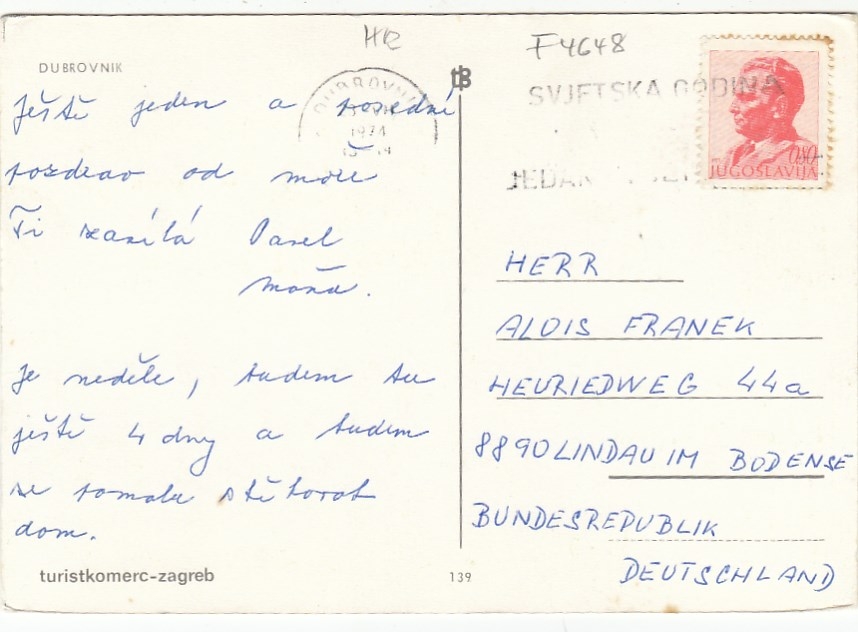 HR
F4648
DUBROVNIK
tB
DUBROVNIK
1974
SVJETSKA GODINA
0,80
JUGOSLAVIJA
Ještě jeden a poslední
pozdrav od moře
Ti zasílá Pavel
Je neděle, budem tu
ještě 4 dny a budem
se pomalu stěhovat
dom.
HERR
ALOIS FRANEK
HEURIEDWEG 44a
8890 LINDAU IM BODENSE
BUNDESREPUBLIK
DEUTSCHLAND
turistkomerc-zagreb
139